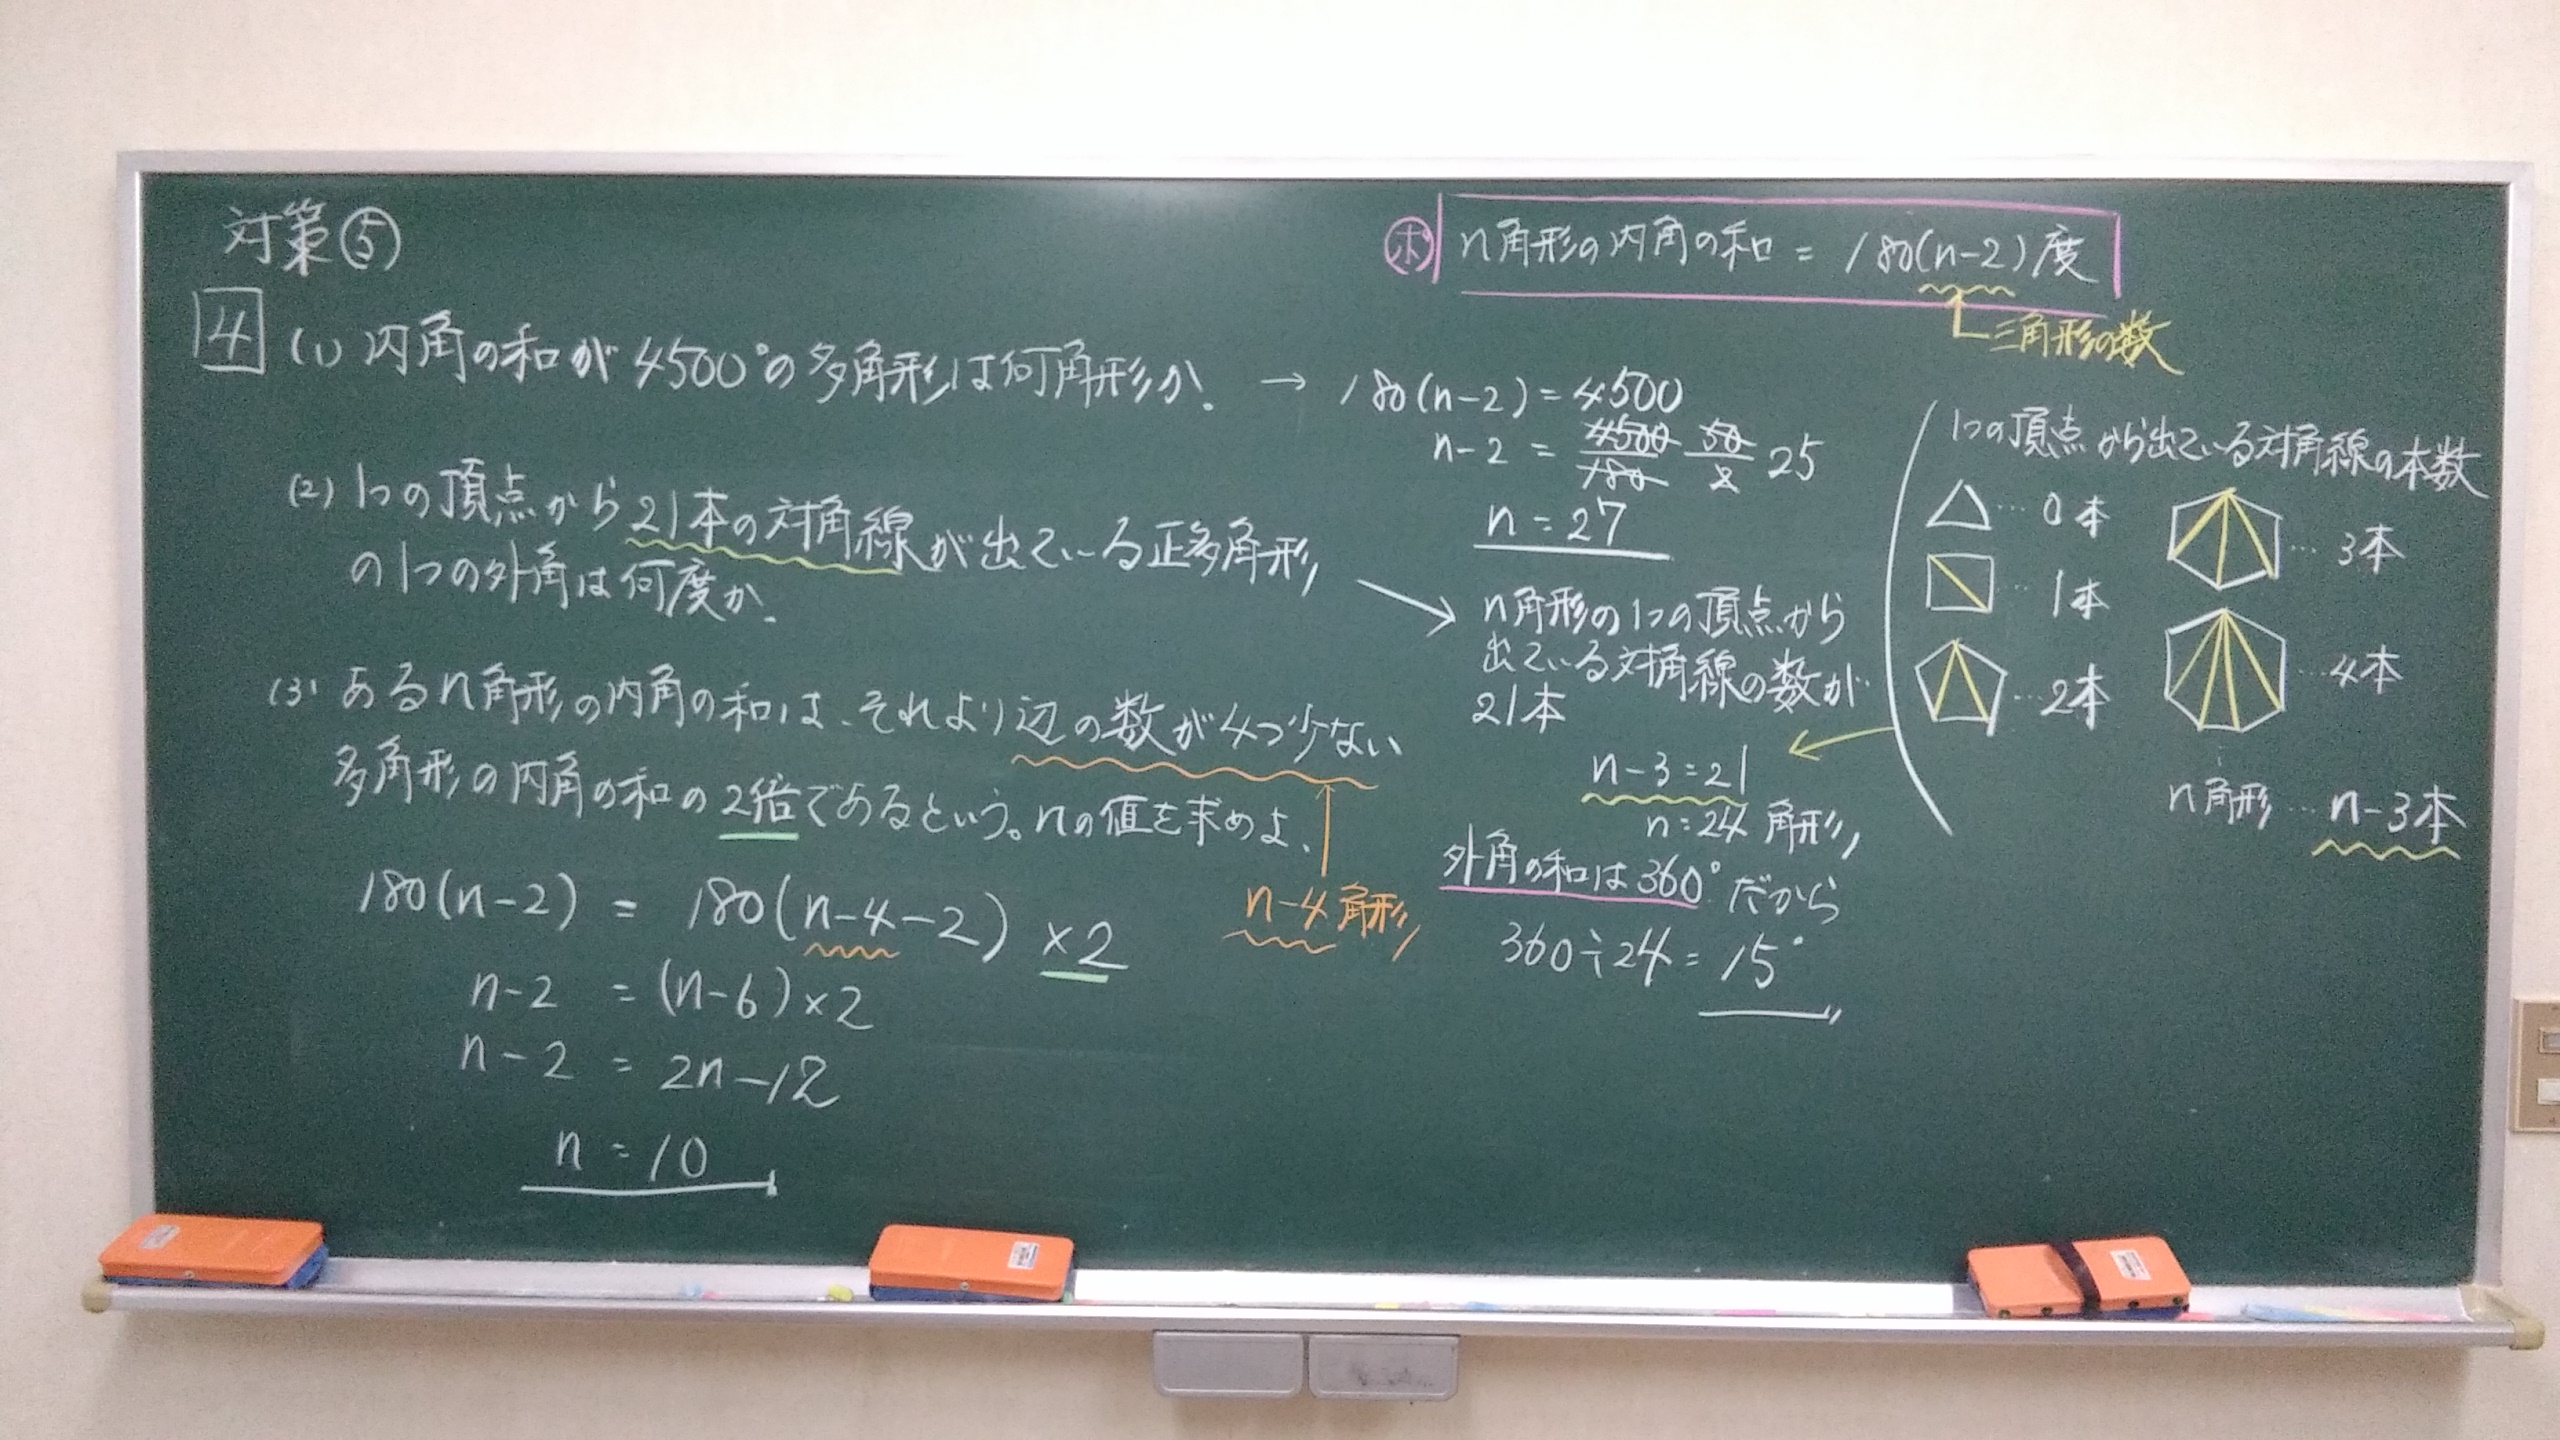 対策⑤
4 (1) 内角の和が4500°の多角形は何角形か。
(2) 1つの頂点から21本の対角線が出ている正多角形
の1つの外角は何度か。
(3) あるn角形の内角の和は、それより辺の数が4つ少ない
多角形の内角の和の2倍であるという。nの値を求めよ。
n-4角形
180(n-2) = 180(n-4-2) ×2
n-2 = (n-6)×2
n-2 = 2n-12
n=10
ポ n角形の内角の和 = 180(n-2)度
三角形の数
→ 180(n-2)=4500
n-2 = 4500/180 50/2 25
n=27
n角形の1つの頂点から
出ている対角線の数が
21本
n-3=21
n=24角形
外角の和は360°だから
360÷24=15°
1つの頂点から出ている対角線の本数
△…0本
…1本
…2本
…3本
…4本
n角形…n-3本